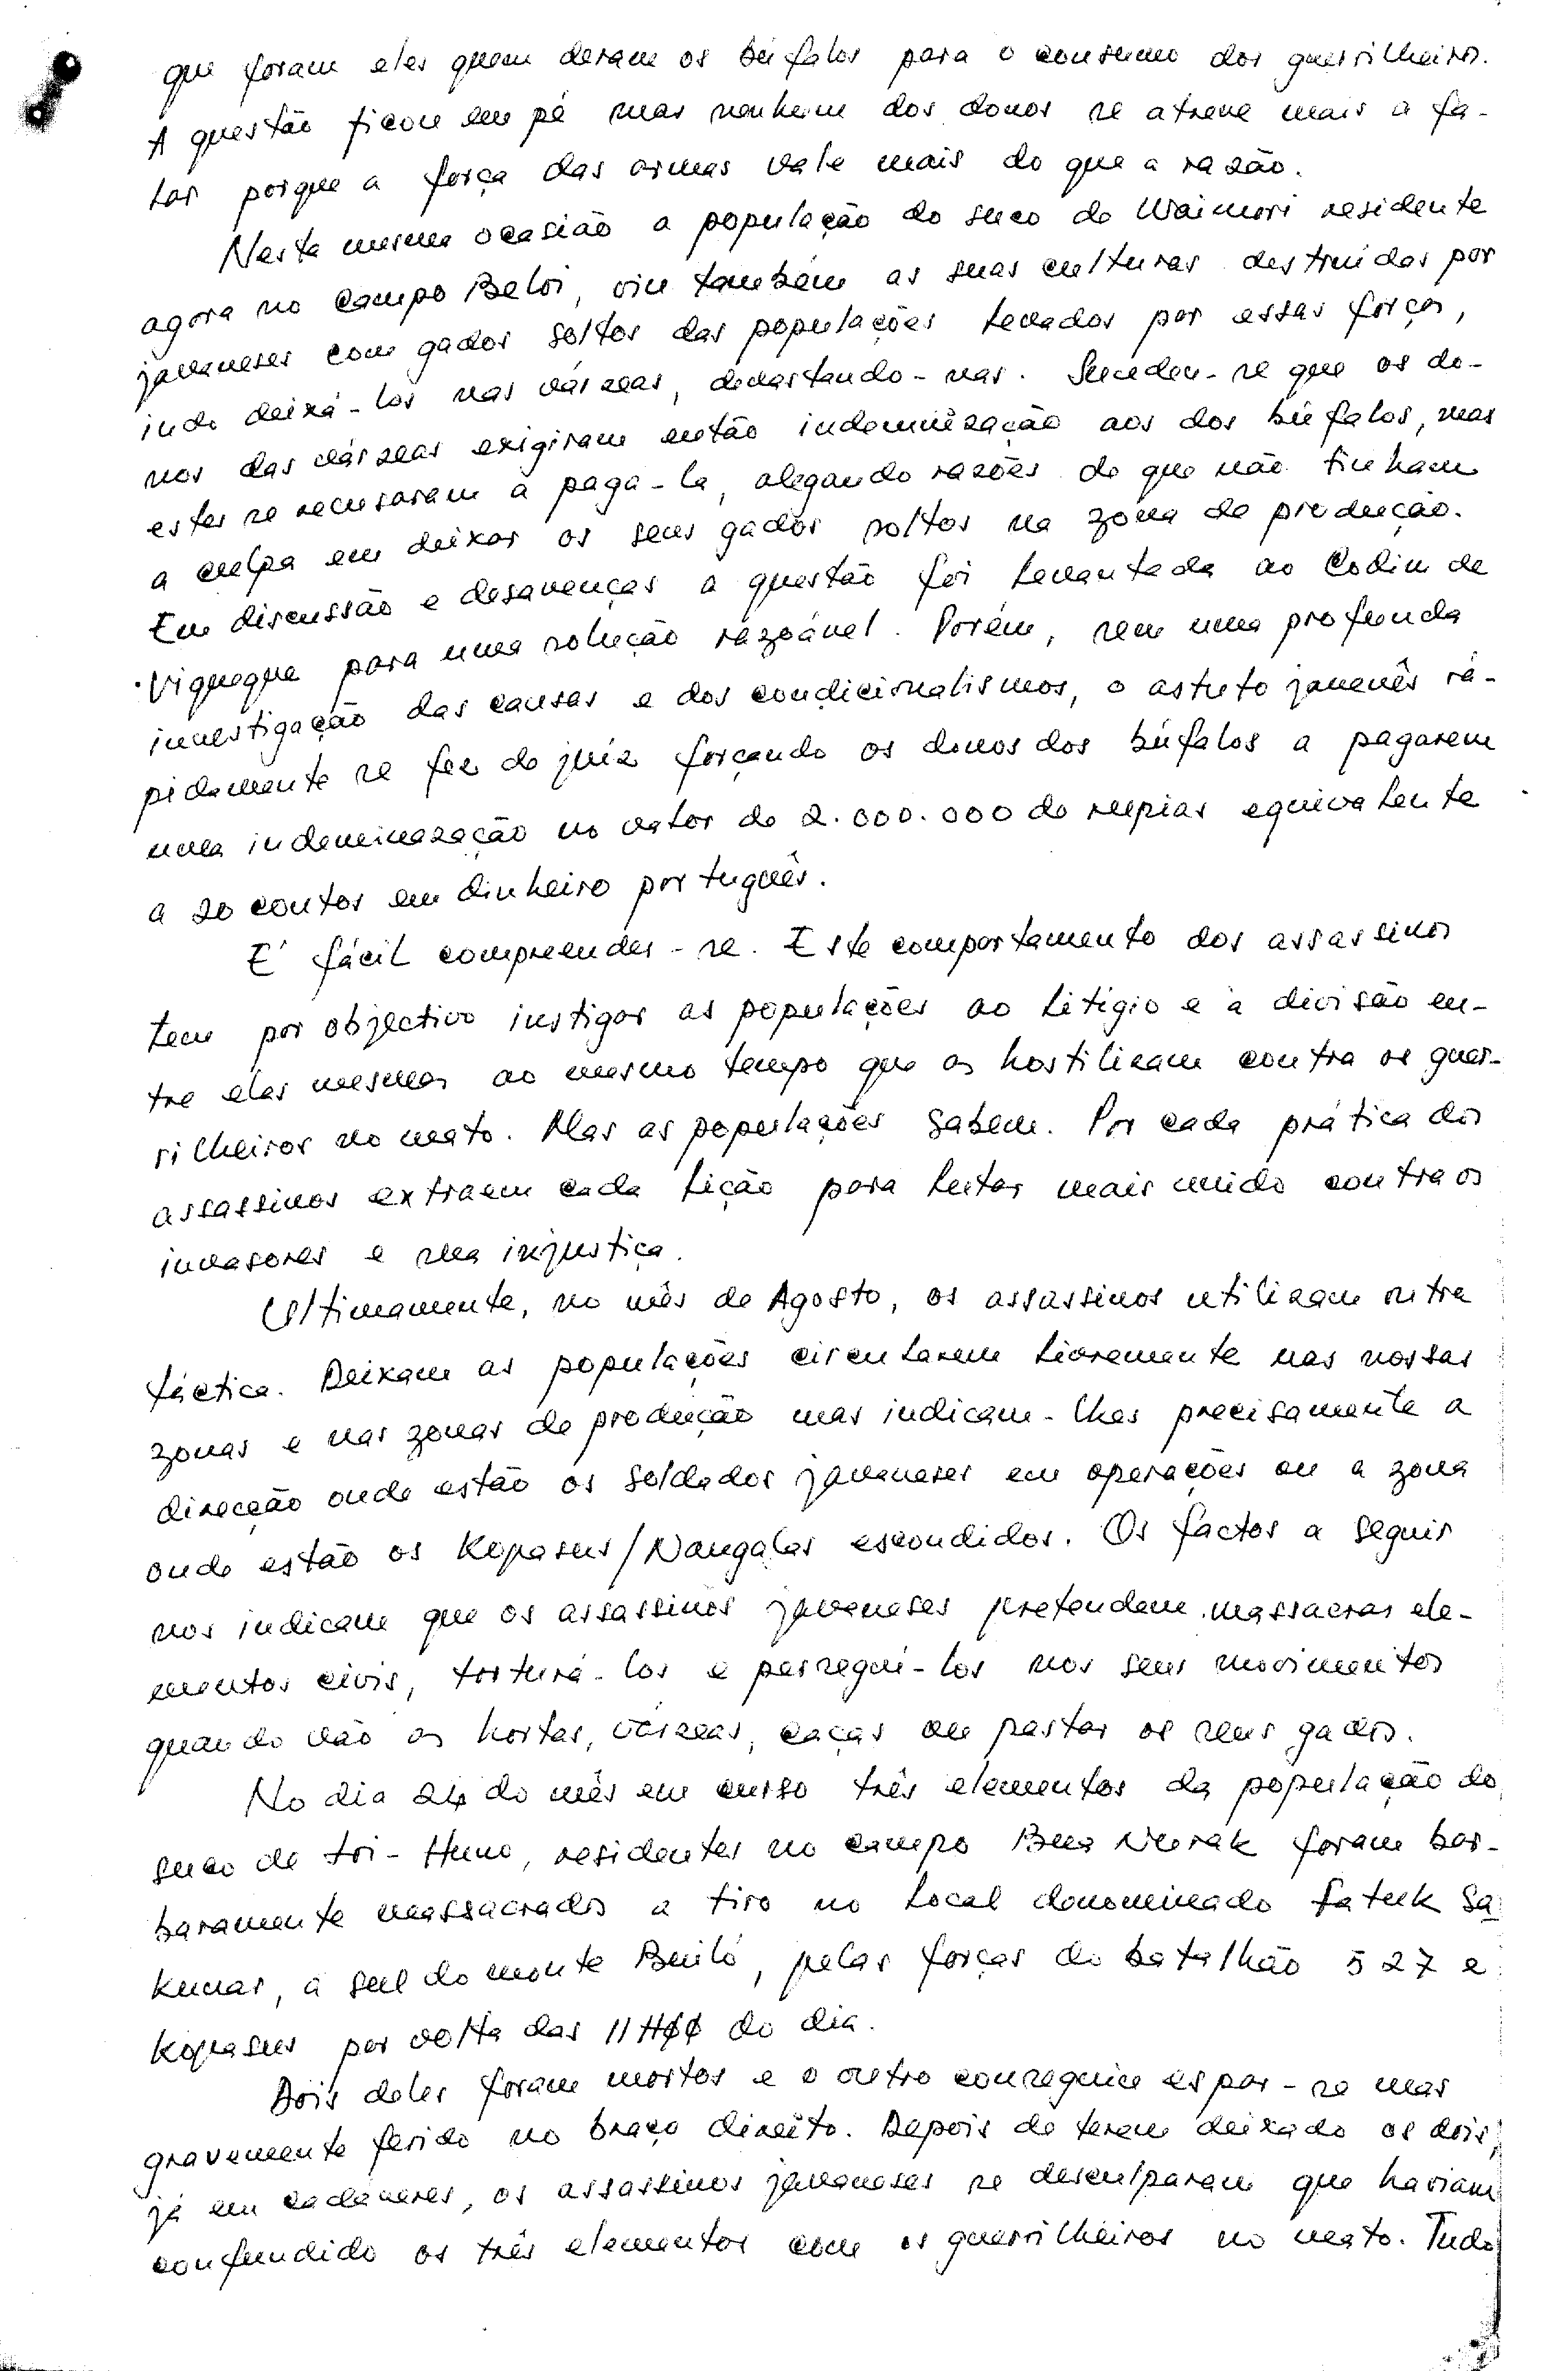 que foram eles quem deram os búfalos para o consumo dos guerrilheiros.
A questão ficou em pé mas nenhum dos donos se atreve mais a fa-
lar porque a força das armas vale mais do que a razão.
Nesta mesma ocasião a população do suco de Uaimori residente
agora no campo Beloi, viu também as suas culturas destruídas por
javaneses com gados soltos das populações levados por essas forças,
indo deixá-los nas várzeas, devastando-nas. Sucedeu-se que os do-
nos das várzeas exigiram então indemnização aos dos búfalos, mas
estes se recusaram a paga-la, alegando razões de que não tinham
a culpa em deixar os seus gados soltos na zona de produção.
Em discussão e desavenças a questão foi levantada ao Codim de
Viqueque para uma solução razoável. Porém, sem uma profunda
investigação das causas e dos condicionalismos, o astuto javanês rá-
pidamente se fez de juíz forçando os donos dos búfalos a pagarem
uma indeminazação no valor de 2.000.000 de rupias equivalente
a 20 contos em dinheiro português.
É fácil compreender-se. Este comportamento dos assassinos
tem por objectivo instigar as populações ao litígio e à divisão en-
tre elas mesmas ao mesmo tempo que as hostilizam contra os guer-
rilheiros no mato. Mas as populações sabem. Por cada prática dos
assassinos extraem cada lição para lutar mais unido contra os
invasores e sua injustiça.
Ultimamente, no mês de Agosto, os assassinos utilizam outra
táctica. Deixam as populações circularem livremente nas nossas
zonas e nas zonas de produção mas indicam-lhes precisamente a
direcção onde estão os soldados javaneses em operações ou a zona
onde estão os Kopasus/Nangalas escondidos. Os factos a seguir
nos indicam que os assassinos javaneses pretendem massacrar ele-
mentos civis, torturá-los e perseguí-los nos seus movimentos
quando vão as hortas, várzeas, caças ou pastar os seus gados.
No dia 24 do mês em curso três elementos da população do
suco de Loi-Huno, residentes no campo Bua Nurak foram bar-
baramente massacrados a tiro no local denominado Fatuk Sa
kunar, a sul do monte Builó, pelas forças do batalhão 527 e
Kopasus por volta das 11H00 do dia.
Dois deles foram mortos e o outro conseguiu espar-se mas
gravemente ferido no braço direito. Depois de terem deixado os dois,
já em cadáveres, os assassinos javaneses se desculparam que haviam
confundido os três elementos com os guerrilheiros no mato. Tudo